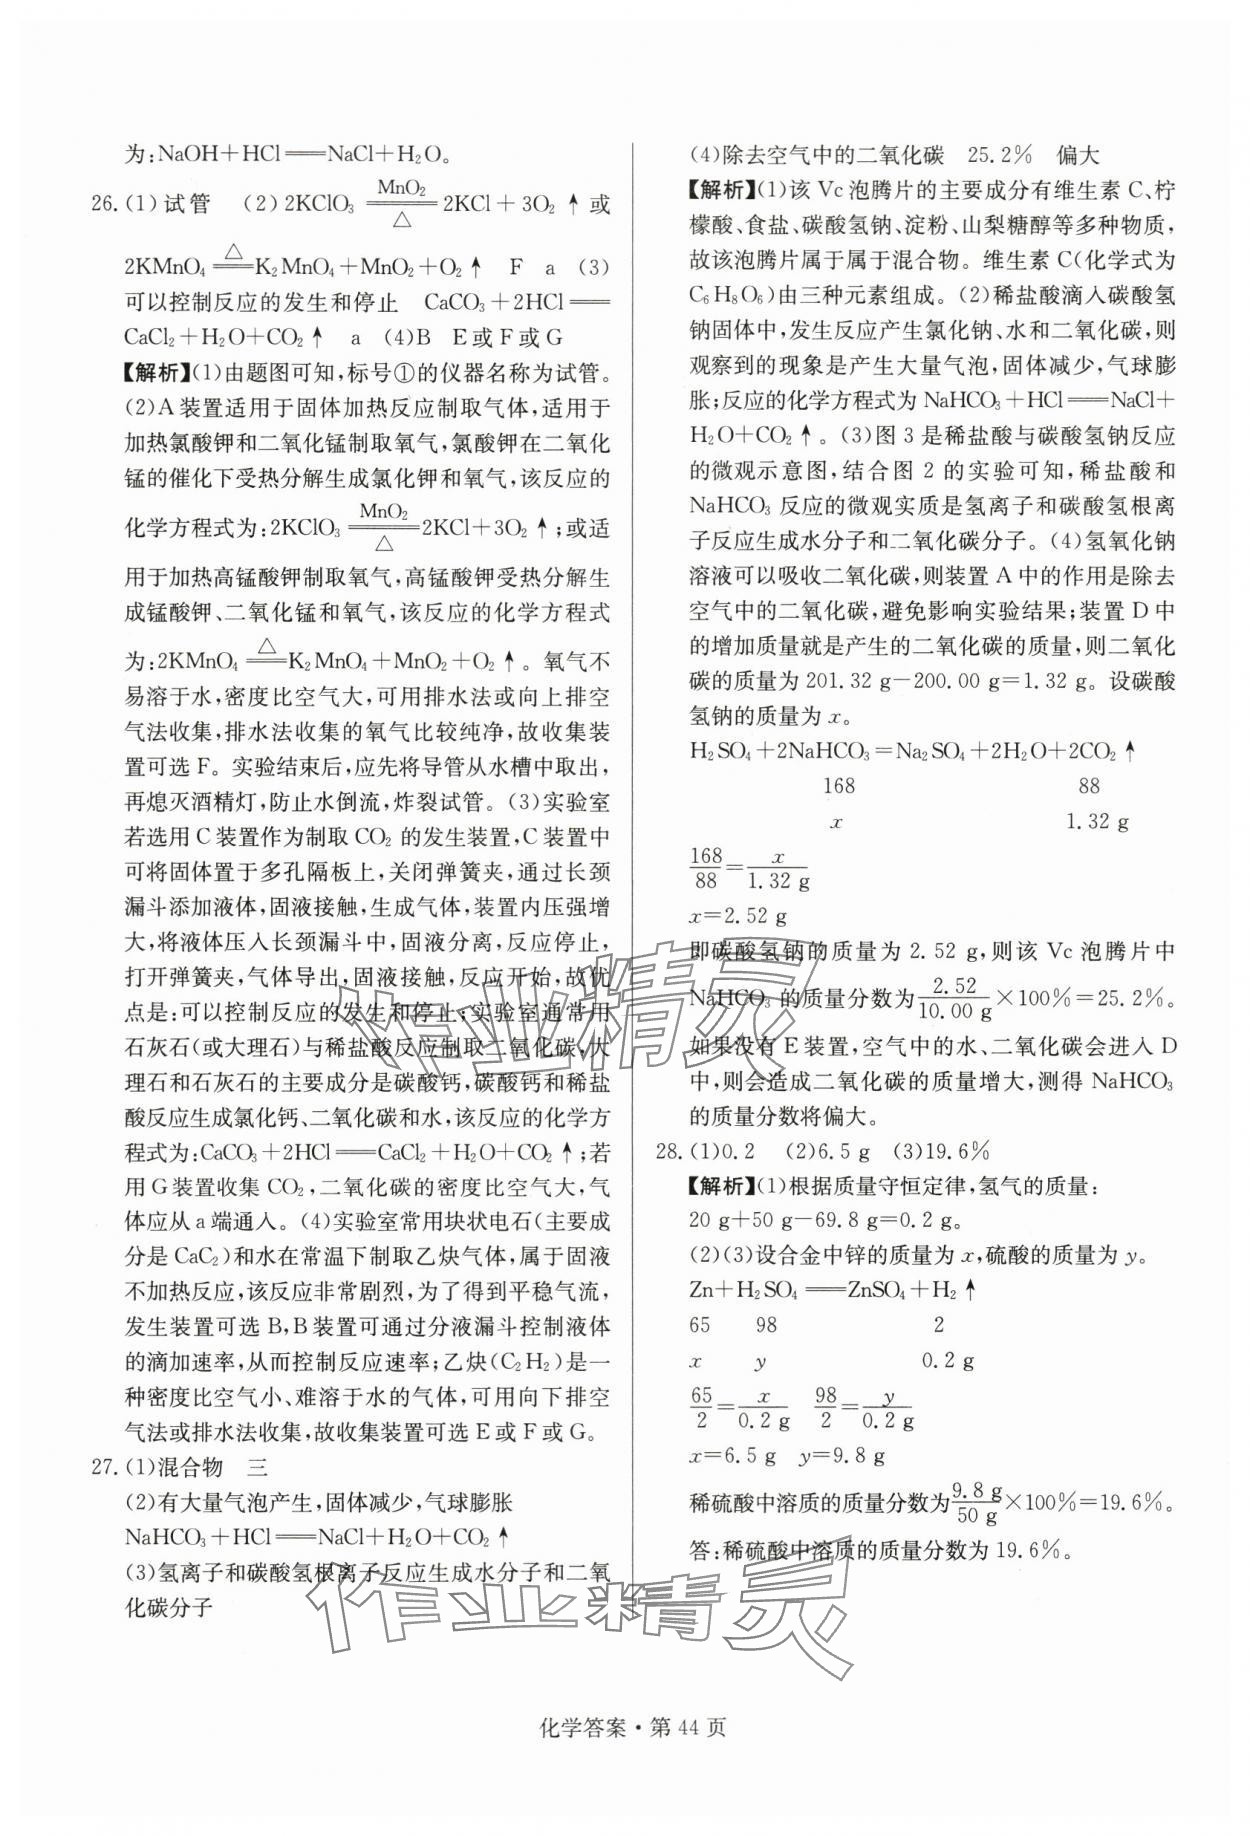 为:NaOH+HCl══NaCl+H₂O。
26.(1)试管 (2)2KClO₃ ══(MnO₂/△) 2KCl+3O₂↑或
2KMnO₄ ══(△) K₂MnO₄+MnO₂+O₂↑ F a (3)
可以控制反应的发生和停止 CaCO₃+2HCl══
CaCl₂+H₂O+CO₂↑ a (4)B E或F或G
【解析】(1)由题图可知,标号①的仪器名称为试管。
(2)A装置适用于固体加热反应制取气体,适用于
加热氯酸钾和二氧化锰制取氧气,氯酸钾在二氧化
锰的催化下受热分解生成氯化钾和氧气,该反应的
化学方程式为:2KClO₃ ══(MnO₂/△) 2KCl+3O₂↑;或适
用于加热高锰酸钾制取氧气,高锰酸钾受热分解生
成锰酸钾、二氧化锰和氧气,该反应的化学方程式
为:2KMnO₄ ══(△) K₂MnO₄+MnO₂+O₂↑。氧气不
易溶于水,密度比空气大,可用排水法或向上排空
气法收集,排水法收集的氧气比较纯净,故收集装
置可选F。实验结束后,应先将导管从水槽中取出,
再熄灭酒精灯,防止水倒流,炸裂试管。(3)实验室
若选用C装置作为制取CO₂的发生装置,C装置中
可将固体置于多孔隔板上,关闭弹簧夹,通过长颈
漏斗添加液体,固液接触,生成气体,装置内压强增
大,将液体压入长颈漏斗中,固液分离,反应停止,
打开弹簧夹,气体导出,固液接触,反应开始,故优
点是:可以控制反应的发生和停止;实验室通常用
石灰石(或大理石)与稀盐酸反应制取二氧化碳,大
理石和石灰石的主要成分是碳酸钙,碳酸钙和稀盐
酸反应生成氯化钙、二氧化碳和水,该反应的化学方
程式为:CaCO₃+2HCl══CaCl₂+H₂O+CO₂↑;若
用G装置收集CO₂,二氧化碳的密度比空气大,气
体应从a端通入。(4)实验室常用块状电石(主要成
分是CaC₂)和水在常温下制取乙炔气体,属于固液
不加热反应,该反应非常剧烈,为了得到平稳气流,
发生装置可选B,B装置可通过分液漏斗控制液体
的滴加速率,从而控制反应速率;乙炔(C₂H₂)是一
种密度比空气小、难溶于水的气体,可用向下排空
气法或排水法收集,故收集装置可选E或F或G。
27.(1)混合物 三
(2)有大量气泡产生,固体减少,气球膨胀
NaHCO₃+HCl══NaCl+H₂O+CO₂↑
(3)氢离子和碳酸氢根离子反应生成水分子和二氧
化碳分子
(4)除去空气中的二氧化碳 25.2% 偏大
【解析】(1)该Vc泡腾片的主要成分有维生素C、柠
檬酸、食盐、碳酸氢钠、淀粉、山梨糖醇等多种物质,
故该泡腾片属于属于混合物。维生素C(化学式为
C₆H₈O₆)由三种元素组成。(2)稀盐酸滴入碳酸氢
钠固体中,发生反应产生氯化钠、水和二氧化碳,则
观察到的现象是产生大量气泡,固体减少,气球膨
胀;反应的化学方程式为NaHCO₃+HCl══NaCl+
H₂O+CO₂↑。(3)图3是稀盐酸与碳酸氢钠反应
的微观示意图,结合图2的实验可知,稀盐酸和
NaHCO₃反应的微观实质是氢离子和碳酸氢根离
子反应生成水分子和二氧化碳分子。(4)氢氧化钠
溶液可以吸收二氧化碳,则装置A中的作用是除去
空气中的二氧化碳,避免影响实验结果;装置D中
的增加质量就是产生的二氧化碳的质量,则二氧化
碳的质量为201.32 g-200.00 g=1.32 g。设碳酸
氢钠的质量为x。
H₂SO₄+2NaHCO₃=Na₂SO₄+2H₂O+2CO₂↑
168 88
x 1.32 g
168/88=x/1.32 g
x=2.52 g
即碳酸氢钠的质量为2.52 g,则该Vc泡腾片中
NaHCO₃的质量分数为2.52/10.00 g×100%=25.2%。
如果没有E装置,空气中的水、二氧化碳会进入D
中,则会造成二氧化碳的质量增大,测得NaHCO₃
的质量分数将偏大。
28.(1)0.2 (2)6.5 g (3)19.6%
【解析】(1)根据质量守恒定律,氢气的质量:
20 g+50 g-69.8 g=0.2 g。
(2)(3)设合金中锌的质量为x,硫酸的质量为y。
Zn+H₂SO₄══ZnSO₄+H₂↑
65 98 2
x y 0.2 g
65/2=x/0.2 g 98/2=y/0.2 g
x=6.5 g y=9.8 g
稀硫酸中溶质的质量分数为9.8 g/50 g×100%=19.6%。
答:稀硫酸中溶质的质量分数为19.6%。
作业精灵
作业精灵
化学答案·第44页